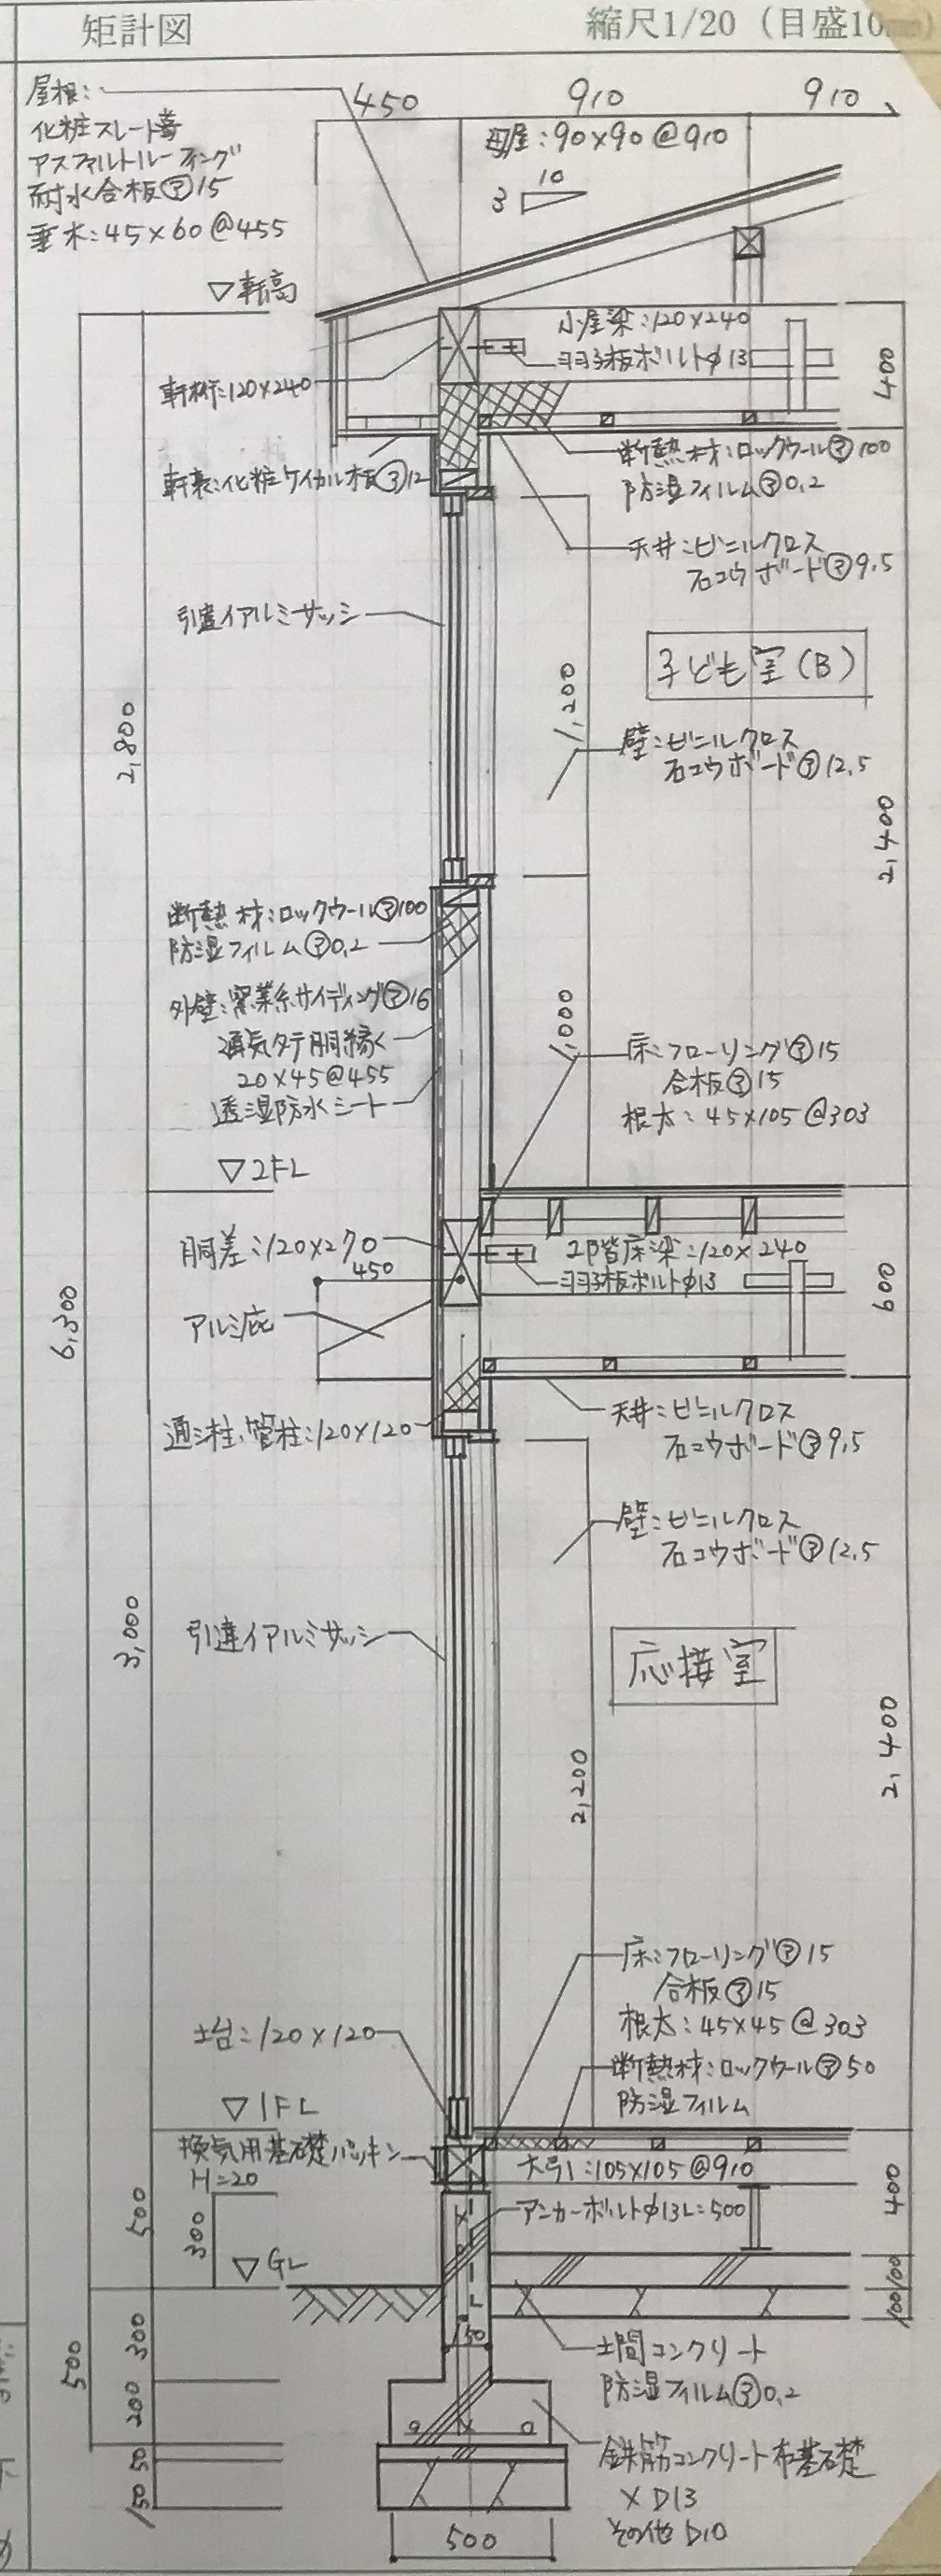 矩計図
縮尺1/20（目盛10
屋根:
化粧スレート葺
アスファルトルーフィング
耐水合板㋐15
垂木:45×60@455
450
910
910
母屋:90×90@910
10
3
▽軒高
小屋梁:120×240
羽子板ボルトφ13
400
軒桁:120×240
断熱材:ロックウール㋐100
防湿フィルム㋐0.2
軒裏:化粧ケイカル板㋐12
天井:ビニルクロス
石コウボード㋐9.5
引違イアルミサッシ
子ども室(B)
1,200
2,800
壁:ビニルクロス
石コウボード㋐12.5
2,400
断熱材:ロックウール㋐100
防湿フィルム㋐0.2
外壁:窯業系サイディング㋐16
通気タテ胴縁
20×45@455
透湿防水シート
1,000
床:フローリング㋐15
合板㋐15
根太:45×105@303
▽2FL
胴差:120×270
450
2階床梁:120×240
羽子板ボルトφ13
600
6,300
アルミ庇
通シ柱、管柱:120×120
天井:ビニルクロス
石コウボード㋐9.5
壁:ビニルクロス
石コウボード㋐12.5
3,000
引違イアルミサッシ
応接室
2,200
2,400
床:フローリング㋐15
合板㋐15
根太:45×45@303
断熱材:ロックウール㋐50
防湿フィルム
土台:120×120
▽1FL
換気用基礎パッキン
H=20
大引:105×105@910
アンカーボルトφ13L=500
400
500
300
▽GL
100
100
150
土間コンクリート
防湿フィルム㋐0.2
500
300
200
50
150
鉄筋コンクリート布基礎
× D13
その他 D10
500